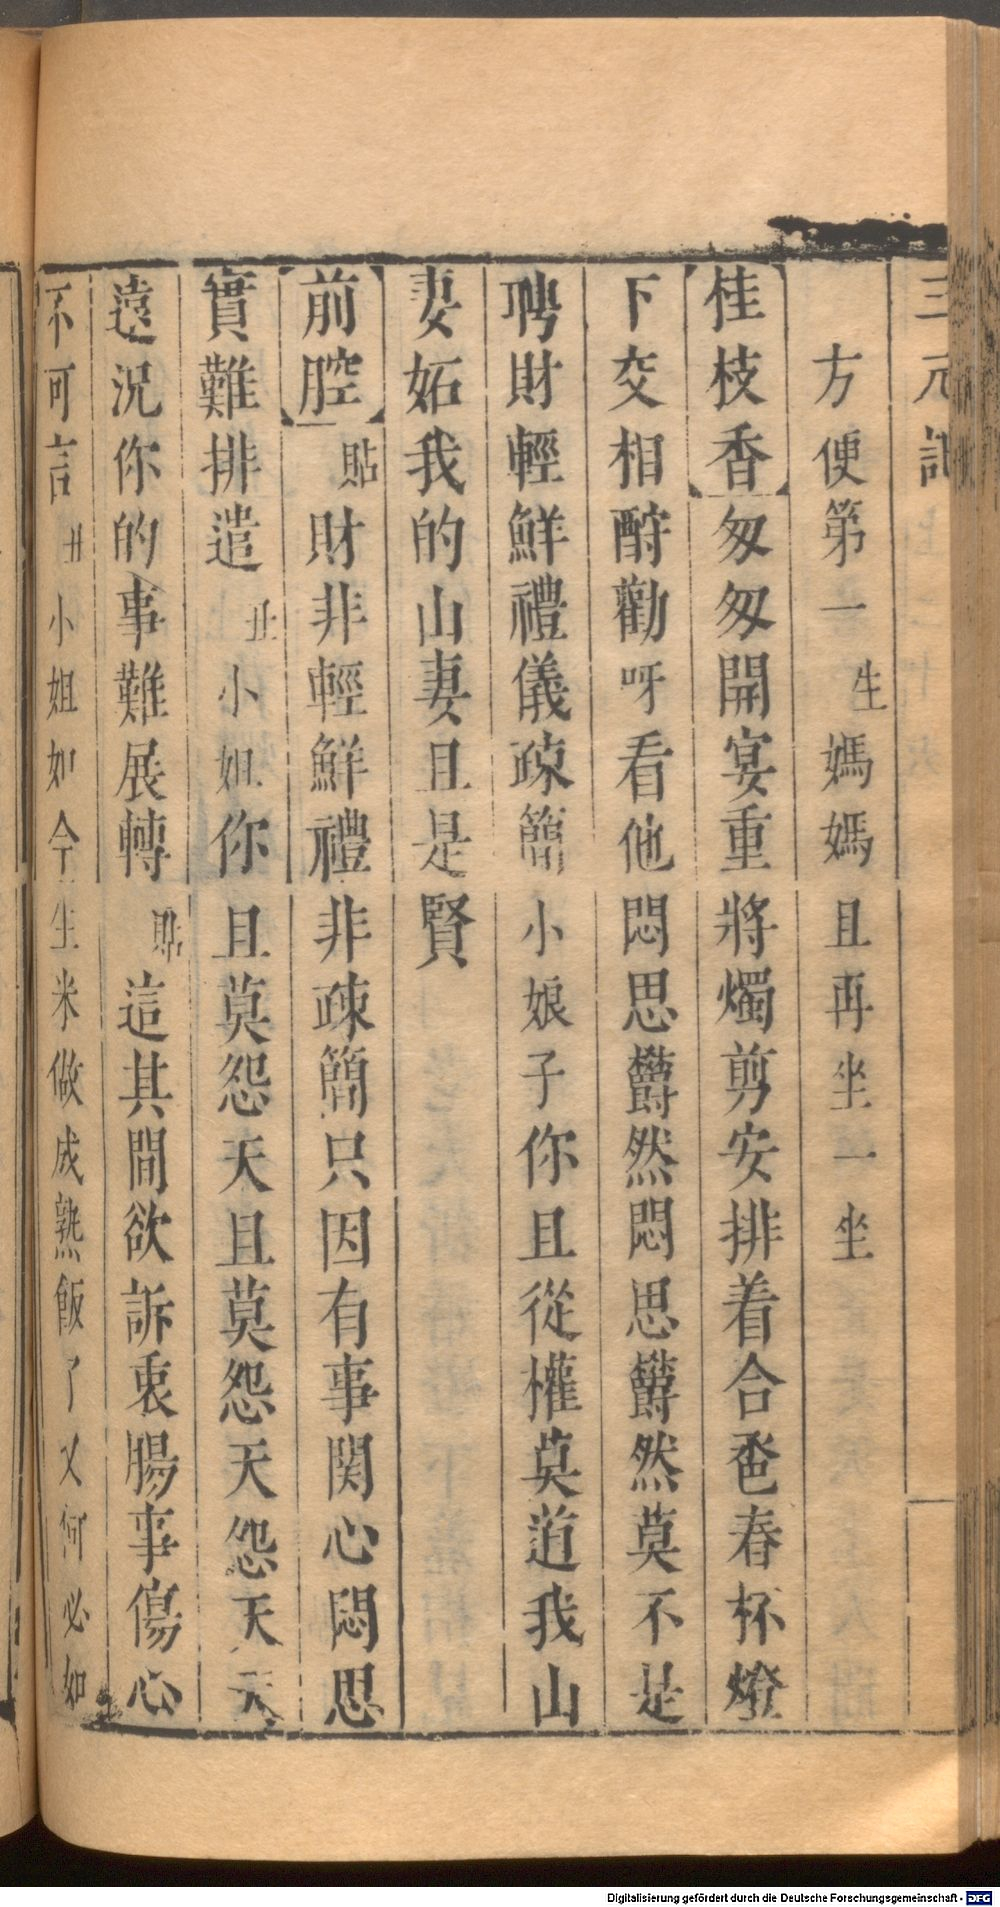 三元記
方便第一生媽媽且再坐一坐
【桂枝香】匆匆開宴重將燭剪安排着合卺春杯燈
下交相酧勸呀看他悶思欝然悶思欝然莫不是
聘財輕鮮禮儀疎簡小娘子你且從權莫道我山
妻妬我的山妻且是賢
【前腔】貼財非輕鮮禮非疎簡只因有事関心悶思
實難排遣丑小姐你且莫怨天且莫怨天怨天天
遠況你的事難展轉貼這其間欲訴衷腸事傷心
不可言丑小姐如今生米做成熟飯了又何必如
Digitalisierung gefördert durch die Deutsche Forschungsgemeinschaft - DFG